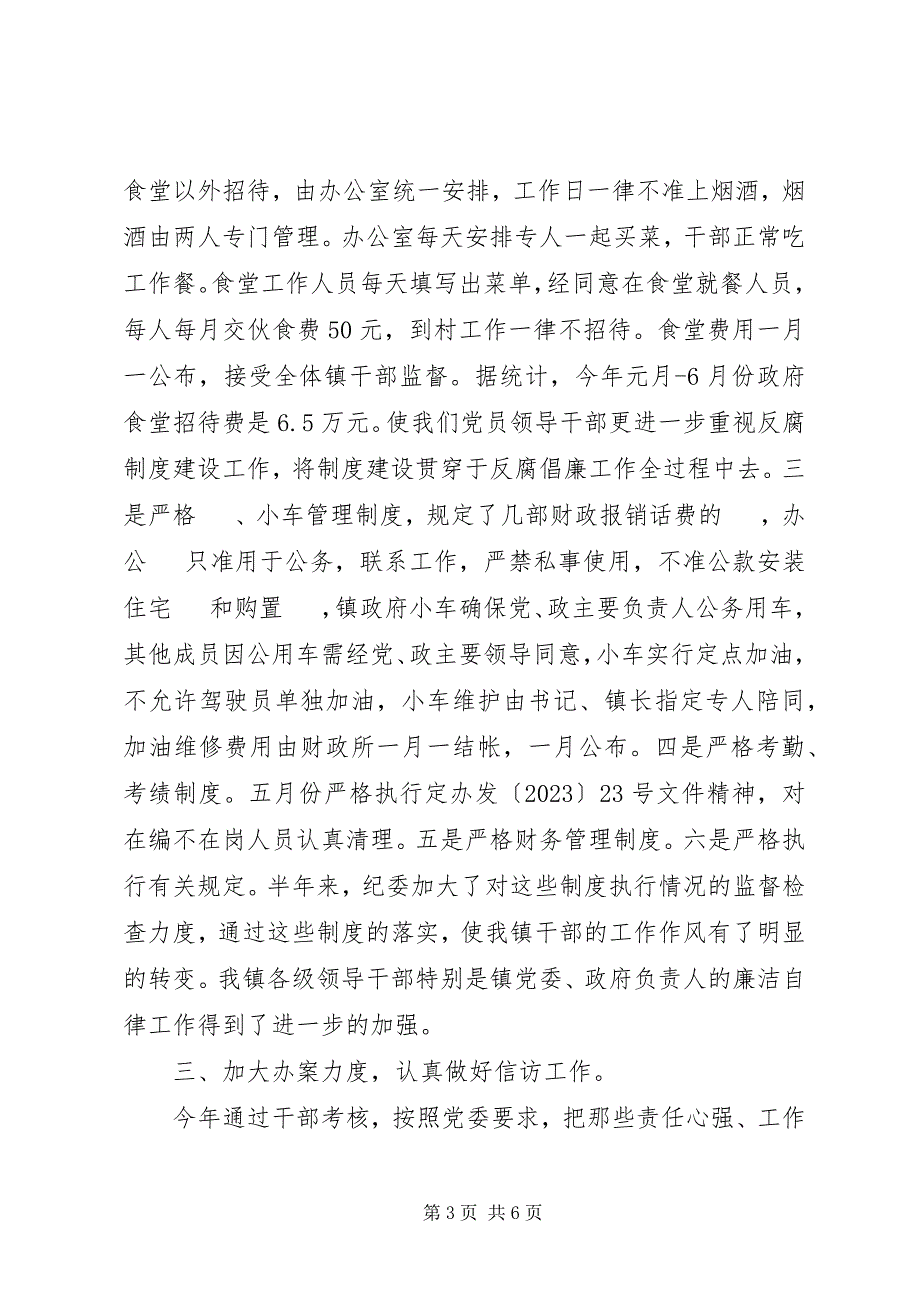 食堂以外招待，由办公室统一安排，工作日一律不准上烟酒，烟
酒由两人专门管理。办公室每天安排专人一起买菜，干部正常吃
工作餐。食堂工作人员每天填写出菜单，经同意在食堂就餐人员，
每人每月交伙食费 50 元，到村工作一律不招待。食堂费用一月
一公布，接受全体镇干部监督。据统计，今年元月-6 月份政府
食堂招待费是 6.5 万元。使我们党员领导干部更进一步重视反腐
制度建设工作，将制度建设贯穿于反腐倡廉工作全过程中去。三
是严格　 、小车管理制度，规定了几部财政报销话费的　 ，办
公　 只准用于公务，联系工作，严禁私事使用，不准公款安装
住宅　 和购置　 ，镇政府小车确保党、政主要负责人公务用车，
其他成员因公用车需经党、政主要领导同意，小车实行定点加油，
不允许驾驶员单独加油，小车维护由书记、镇长指定专人陪同，
加油维修费用由财政所一月一结帐，一月公布。四是严格考勤、
考绩制度。五月份严格执行定办发〔2023〕23 号文件精神，对
在编不在岗人员认真清理。五是严格财务管理制度。六是严格执
行有关规定。半年来，纪委加大了对这些制度执行情况的监督检
查力度，通过这些制度的落实，使我镇干部的工作作风有了明显
的转变。我镇各级领导干部特别是镇党委、政府负责人的廉洁自
律工作得到了进一步的加强。
三、加大办案力度，认真做好信访工作。
今年通过干部考核，按照党委要求，把那些责任心强、工作
第 3 页 共 6 页